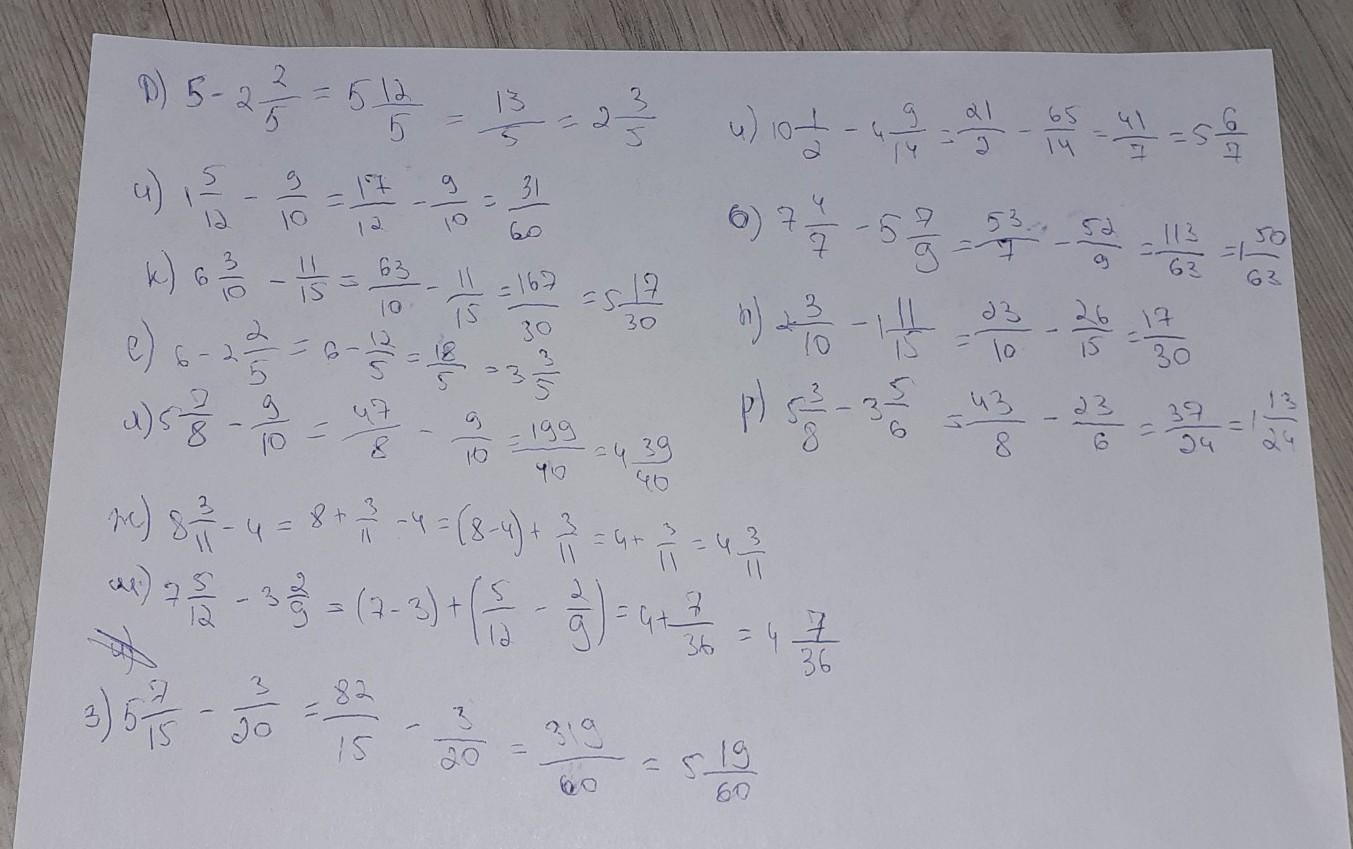 д) 5 - 2 2/5 = 5 12/5 = 13/5 = 2 3/5
и) 1 5/12 - 9/10 = 17/12 - 9/10 = 31/60
к) 6 3/10 - 11/15 = 63/10 - 11/15 = 167/30 = 5 17/30
е) 6 - 2 2/5 = 6 - 12/5 = 18/5 = 3 3/5
л) 5 7/8 - 9/10 = 47/8 - 9/10 = 199/40 = 4 39/40
ж) 8 3/11 - 4 = 8 + 3/11 - 4 = (8-4) + 3/11 = 4 + 3/11 = 4 3/11
м) 7 5/12 - 3 2/9 = (7-3) + (5/12 - 2/9) = 4 + 7/36 = 4 7/36
з) 5 7/15 - 3/20 = 82/15 - 3/20 = 319/60 = 5 19/60
и) 10 1/2 - 4 9/14 = 21/2 - 65/14 = 41/7 = 5 6/7
о) 7 4/7 - 5 7/9 = 53/7 - 52/9 = 113/63 = 1 50/63
п) 2 3/10 - 1 11/15 = 23/10 - 26/15 = 17/30
р) 5 3/8 - 3 5/6 = 43/8 - 23/6 = 37/24 = 1 13/24